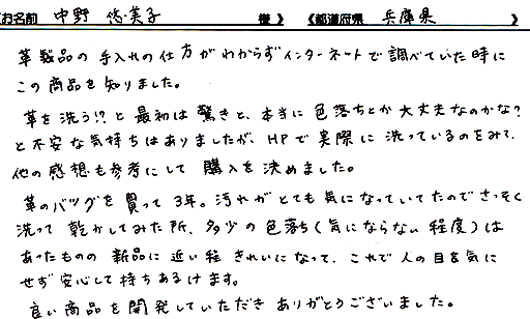 お名前 中野 悠美子 様 》 《都道府県 兵庫県 》
革製品の手入れの仕方がわからずインターネットで調べていた時に
この商品を知りました。
革を洗う!?と最初は驚きと、本当に色落ちとか大丈夫なのかな?
と不安な気持ちはありましたが、HPで実際に洗っているのをみて、
他の感想も参考にして購入を決めました。
革のバッグを買って3年。汚れがとても気になっていてたのでさっそく
洗って乾かしてみた所、多少の色落ち(気にならない程度)は
あったものの新品に近い程きれいになって、これで人の目を気に
せず安心して持ちあるけます。
良い商品を開発していただきありがとうございました。